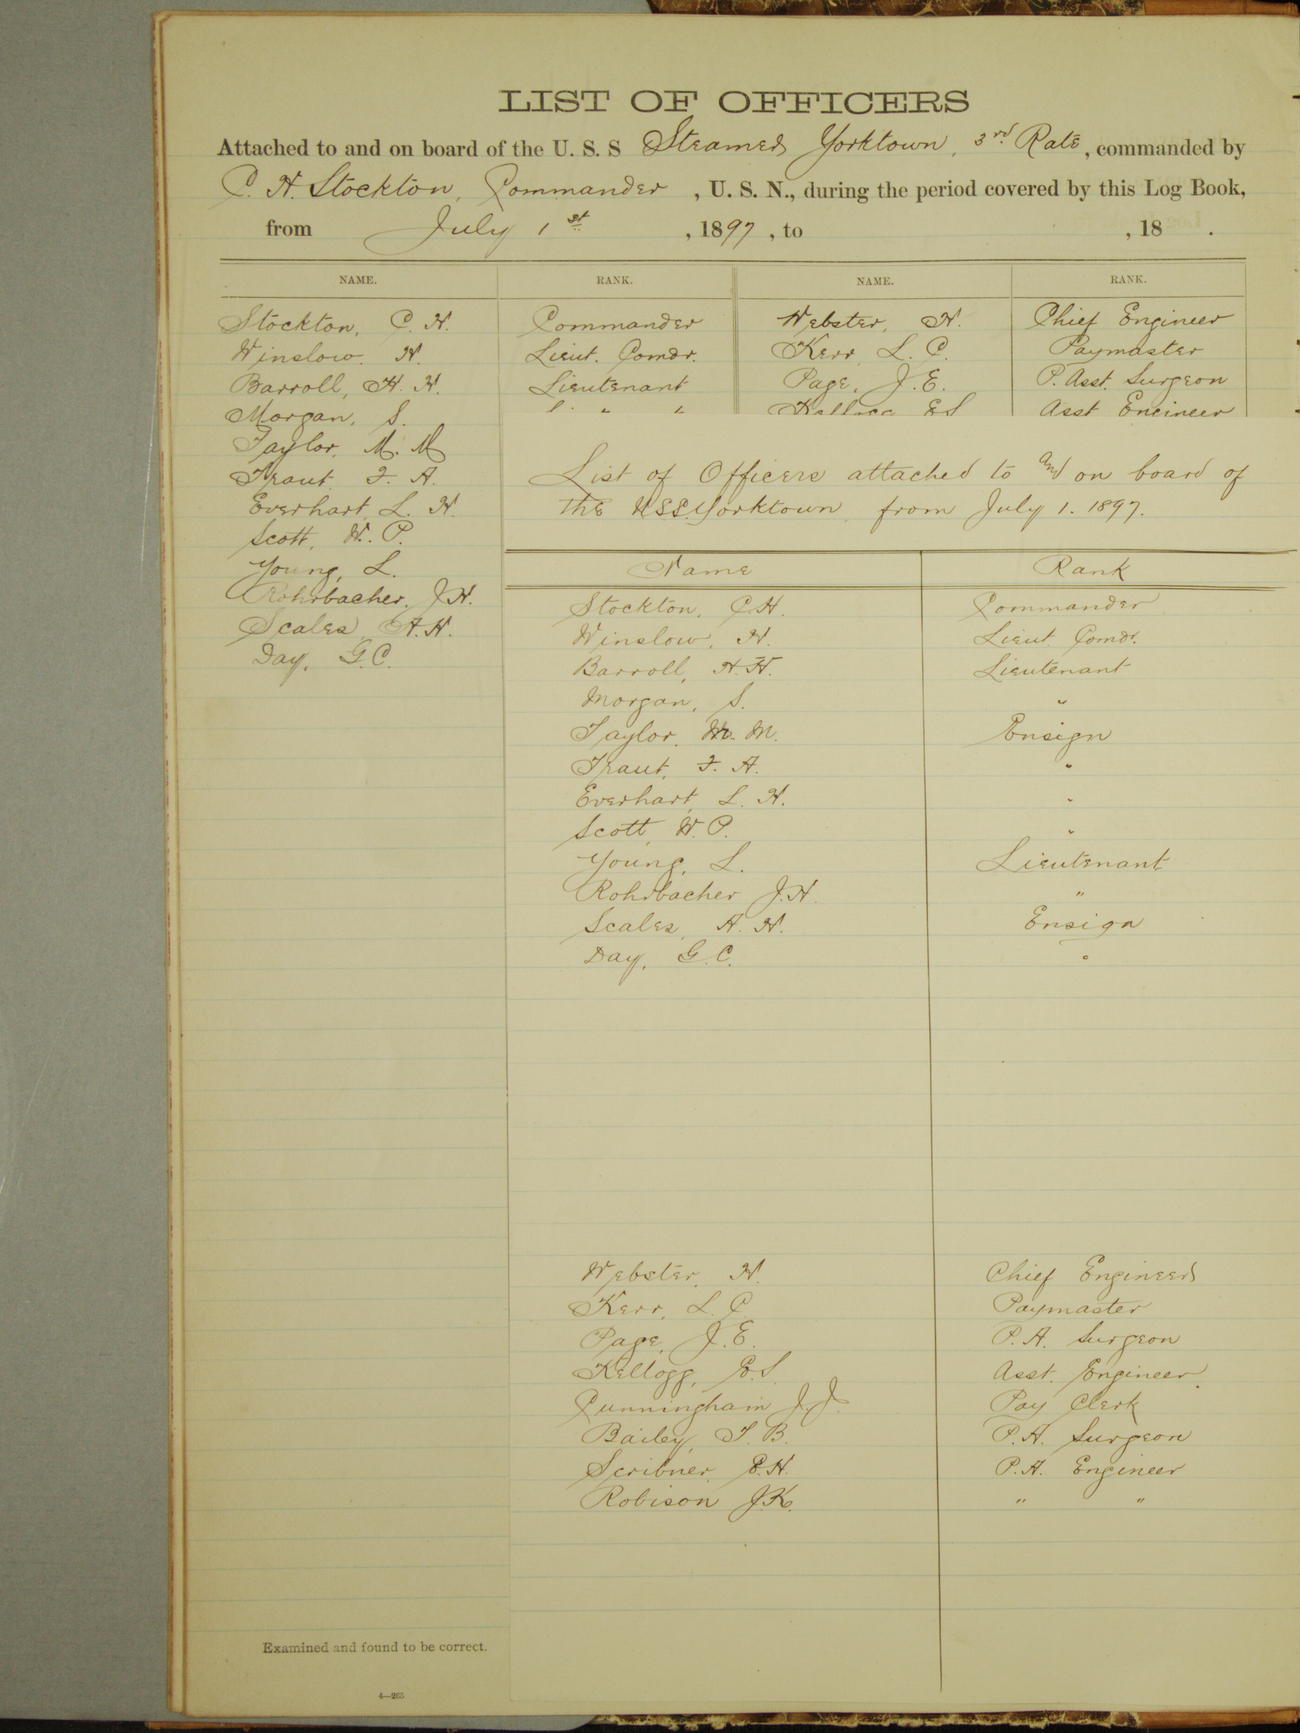 LIST OF OFFICERS
Attached to and on board of the U. S. S Steamer Yorktown, 3rd. Rate, commanded by
C. H. Stockton, Commander, U. S. N., during the period covered by this Log Book,
from July 1st, 1897, to , 18 .
NAME. RANK. NAME. RANK.
Stockton, C. H. Commander Webster, H. Chief Engineer
Winslow. H. Lieut. Comdr. Kerr, L. C. Paymaster
Barroll, H. H. Lieutenant Page, J. E. P. Asst. Surgeon
Morgan, S. " " Kellogg E S Asst Engineer
Taylor, M. M
Traut, F. A.
Everhart, L. H.
Scott, W. P.
Young, L.
Rohrbacher, J H.
Scales, A. H.
Day, G. C.
List of Officers attached to and on board of
the U S S Yorktown from July 1. 1897.
Name Rank
Stockton, C. H. Commander
Winslow, H. Lieut Comdr.
Barroll, H. H. Lieutenant
Morgan, S. "
Taylor, M. M. Ensign
Traut, F. A. "
Everhart, L. H. "
Scott, W. P. "
Young, L. Lieutenant
Rohrbacher J. H. "
Scales, A. H. Ensign
Day, G. C. "
Webster, H. Chief Engineer
Kerr, L. C. Paymaster
Page, J. E. P. A. Surgeon
Kellogg, E. S. Asst. Engineer.
Cunningham J. J. Pay Clerk
Bailey, T. B. P. A. Surgeon
Scribner, E. H. P. A. Engineer
Robison J. K. " "
Examined and found to be correct.
4—265